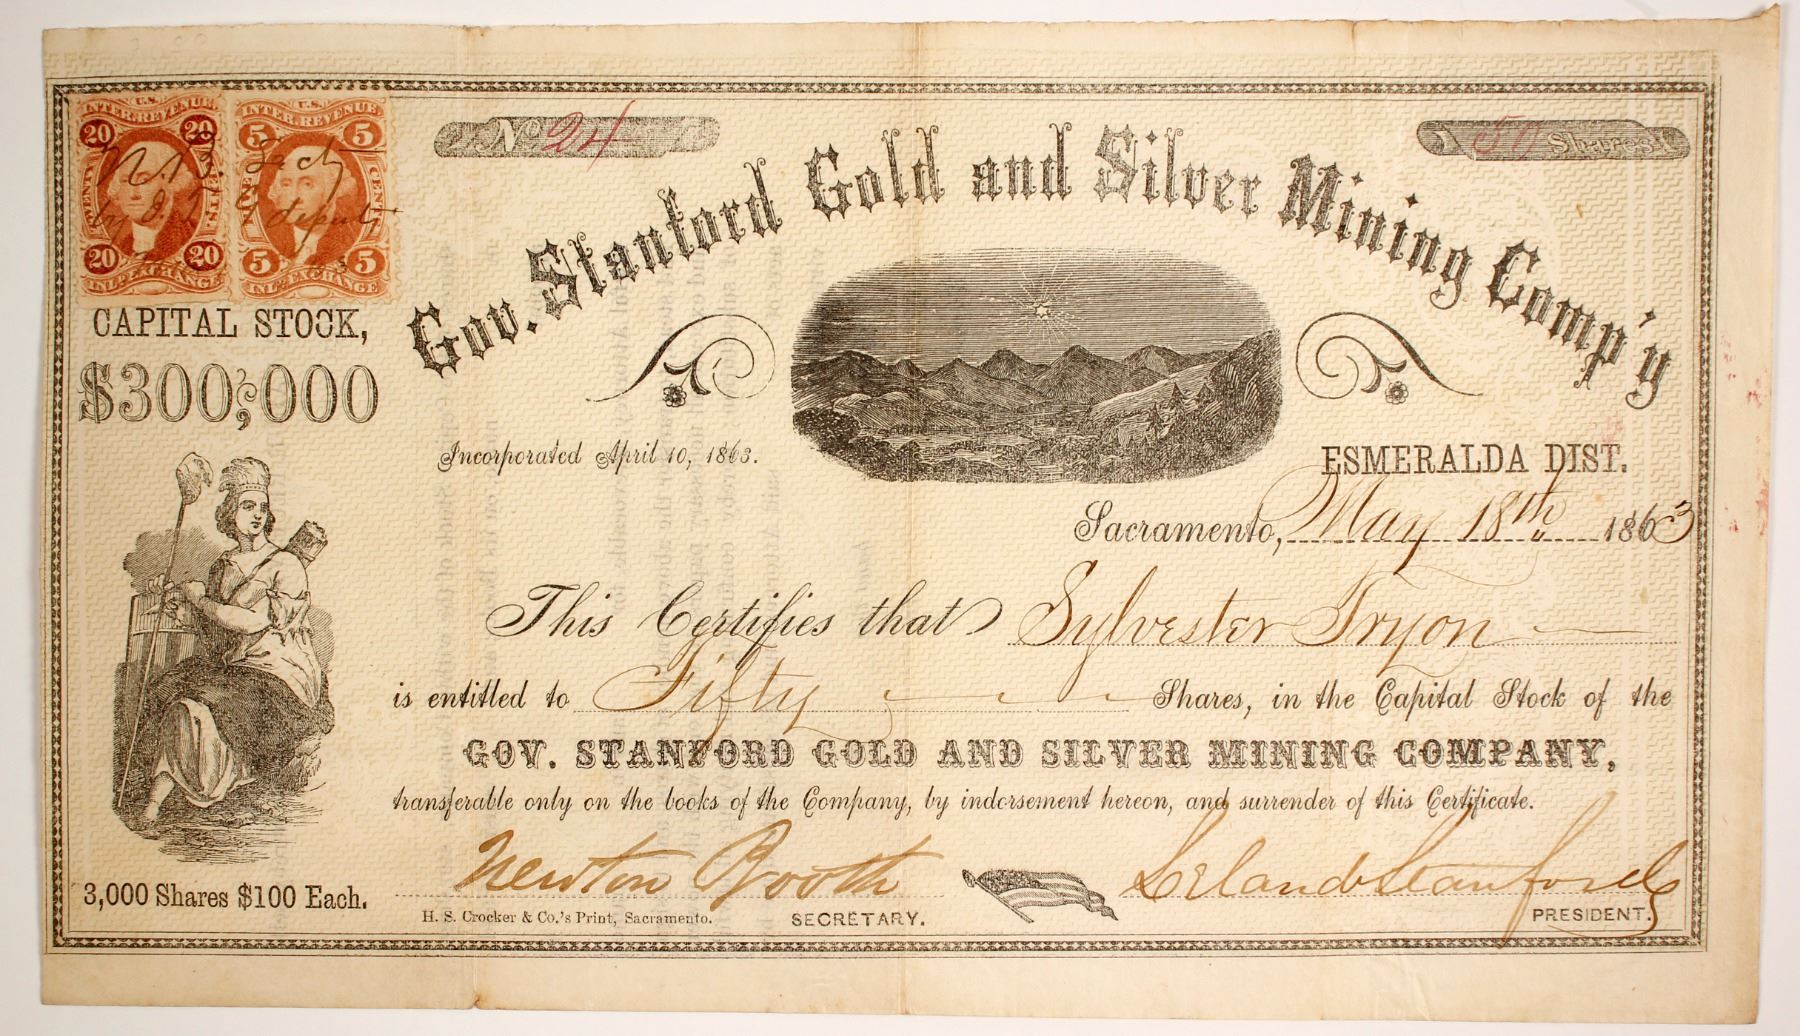 U.S. INTER. REVENUE.
20 20
TWENTY CENTS.
20 20
INL'D EXCHANGE
U.S. INTER. REVENUE
5 5
FIVE CENTS
5 5
INL'D EXCHANGE
N. B. Sec'y
deputy
No 24
50 Shares
Gov. Stanford Gold and Silver Mining Comp'y
CAPITAL STOCK,
$300,000
Incorporated April 10, 1863.
ESMERALDA DIST.
Sacramento, May 18th 1863
This Certifies that Sylvester Tryon
is entitled to Fifty Shares, in the Capital Stock of the
GOV. STANFORD GOLD AND SILVER MINING COMPANY,
transferable only on the books of the Company, by indorsement hereon, and surrender of this Certificate.
Newton Booth Leland Stanford
3,000 Shares $100 Each.
H. S. Crocker & Co.'s Print, Sacramento. SECRETARY. PRESIDENT.